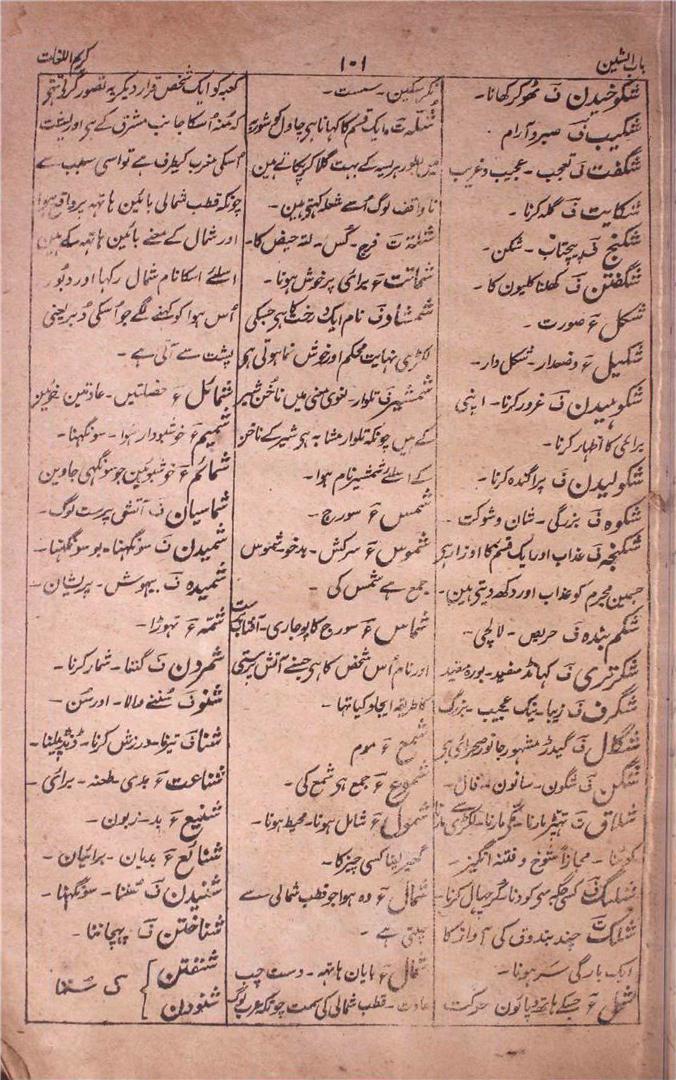 باب الشین
۱۰۱
کریم اللغات
شکوخیدن ف ٹھوکر کھانا۔
شکیب ف صبر و آرام
شگفت ف تعجب۔ عجیب و غریب
شکایت ف گلہ کرنا۔
شکنج ف پیچتاب۔ شکن۔
شگفتن ف کھلنا کلیون کا۔
شکل ع صورت۔
شکیل ع وضعدار۔ شکل دار۔
شکوہیدن ف غرور کرنا۔ اپنی
برائی کا اظہار کرنا۔
شکولیدن ف پراگندہ کرنا۔
شکوہ ف بزرگی۔ شان و شوکت۔
شکنجہ ف عذاب اور ایک قسم کا اوزار ہے
جسمین مجرم کو عذاب اور دکھ دیتی ہین۔
شکم بندہ ف حریص۔ لالچی۔
شکر تری ف کھانڈ سفید۔ بورہ سفید
شگرف ف زیبا۔ نیک عجیب۔ بزرگ
شگال ف گیدڑ مشہور جانور صحرائی ہی
شگن ف شگون۔ سانون۔ فال۔
شلاق ت تھپڑ مارنا۔ لکڑی سے
کوٹنا۔ مجازاً شوخ و فتنہ انگیز۔
شلنگ ف کسی جگہ سی کودنا
شلک ت چند بندوق کی آواز کا
ایک بارگی سر ہونا۔
شل ع جسکے ہاتھ پانون حرکت
نکر سکین۔ سست۔
شلہ ت۔ ایک قسم کا کھانا ہی چاول کو شوربے
مین بطور ہریسہ کے بہت گلا کر پکاتے ہین
ناواقف لوگ اُسے شعلہ کہتی ہین۔
شلتہ ت فرج۔ کس۔ لتہ حیض کا۔
شماتت ع برائی پر خوش ہونا۔
شمشاد ف نام ایک رخت کا ہی جسکی
لکڑی نہایت محکم اور خوش نما ہوتی ہی
شمشیر ف تلوار۔ لغوی معنی مین ناخن شیر
کے ہین چونکہ تلوار مشابہ ہر شیر کے ناخن
کے اسلئے شمشیر نام ہوا۔
شمس ع سورج۔
شموس ع سرکش۔ بدخو شموس
جمع ہے شمس کی۔
شماس ع سورج کا پوجاری۔ آفتاب پرست
اور نام اُس شخص کا ہی جسنے آتش پرستی
کا طریقہ ایجاد کیا تھا۔
شمع ع موم
شموع ع جمع ہر شمع کی۔
شمول ع شامل ہونا۔ محیط ہونا۔
گھیر لینا کسی چیز کا۔
شمال ع وہ ہوا جو قطب شمالی سے
چلتی ہے۔
شمال ع بایان ہاتھہ۔ دست چپ
عادت۔ قطب شمالی کی سمت چونکہ عرب لوگ
کعبہ کو ایک شخص قرار دیکر یہ تصور کرتی تھے
کہ مُنہ اُسکا جانب مشرق کے ہی اور پشت
اُسکی مغرب کیطرف ہے تو اسی سبب سے
چونکہ قطب شمالی بائین ہاتھہ پر واقع ہوا
اور شمال کے معنے بائین ہاتھہ کے ہین
اسلئے اسکا نام شمال رکھا اور دبور
اُس ہوا کو کہنے لگے جو اُسکی دُبر یعنی
پشت سے آتی ہے۔
شمائل ع خصلتین۔ عادتین خوئین
شمیم ع خوشبودار ہوا۔ سونگھنا۔
شمائم ع خوشبوئین جو سونگھی جاوین
شماسیان ف آتش پرست لوگ۔
شمیدن ف سونگھنا۔ بو سونگھنا۔
شمیدہ ف بیہوش۔ پریشان۔
شمہ ع تھوڑا۔
شمردن ف گننا۔ شمار کرنا۔
شنو ف سُننے والا۔ اور سُن۔
شنا ف تیرنا۔ ورزش کرنا۔ ڈنڈ پیلنا۔
شناعت ع بدی۔ طعنہ۔ برائی۔
شنیع ع بد۔ زبون۔
شنائع ع بدیان۔ برائیان۔
شنیدن ف سُننا۔ سونگھنا۔
شناختن ف پہچاننا۔
شنفتن
شنودن } ف سُننا